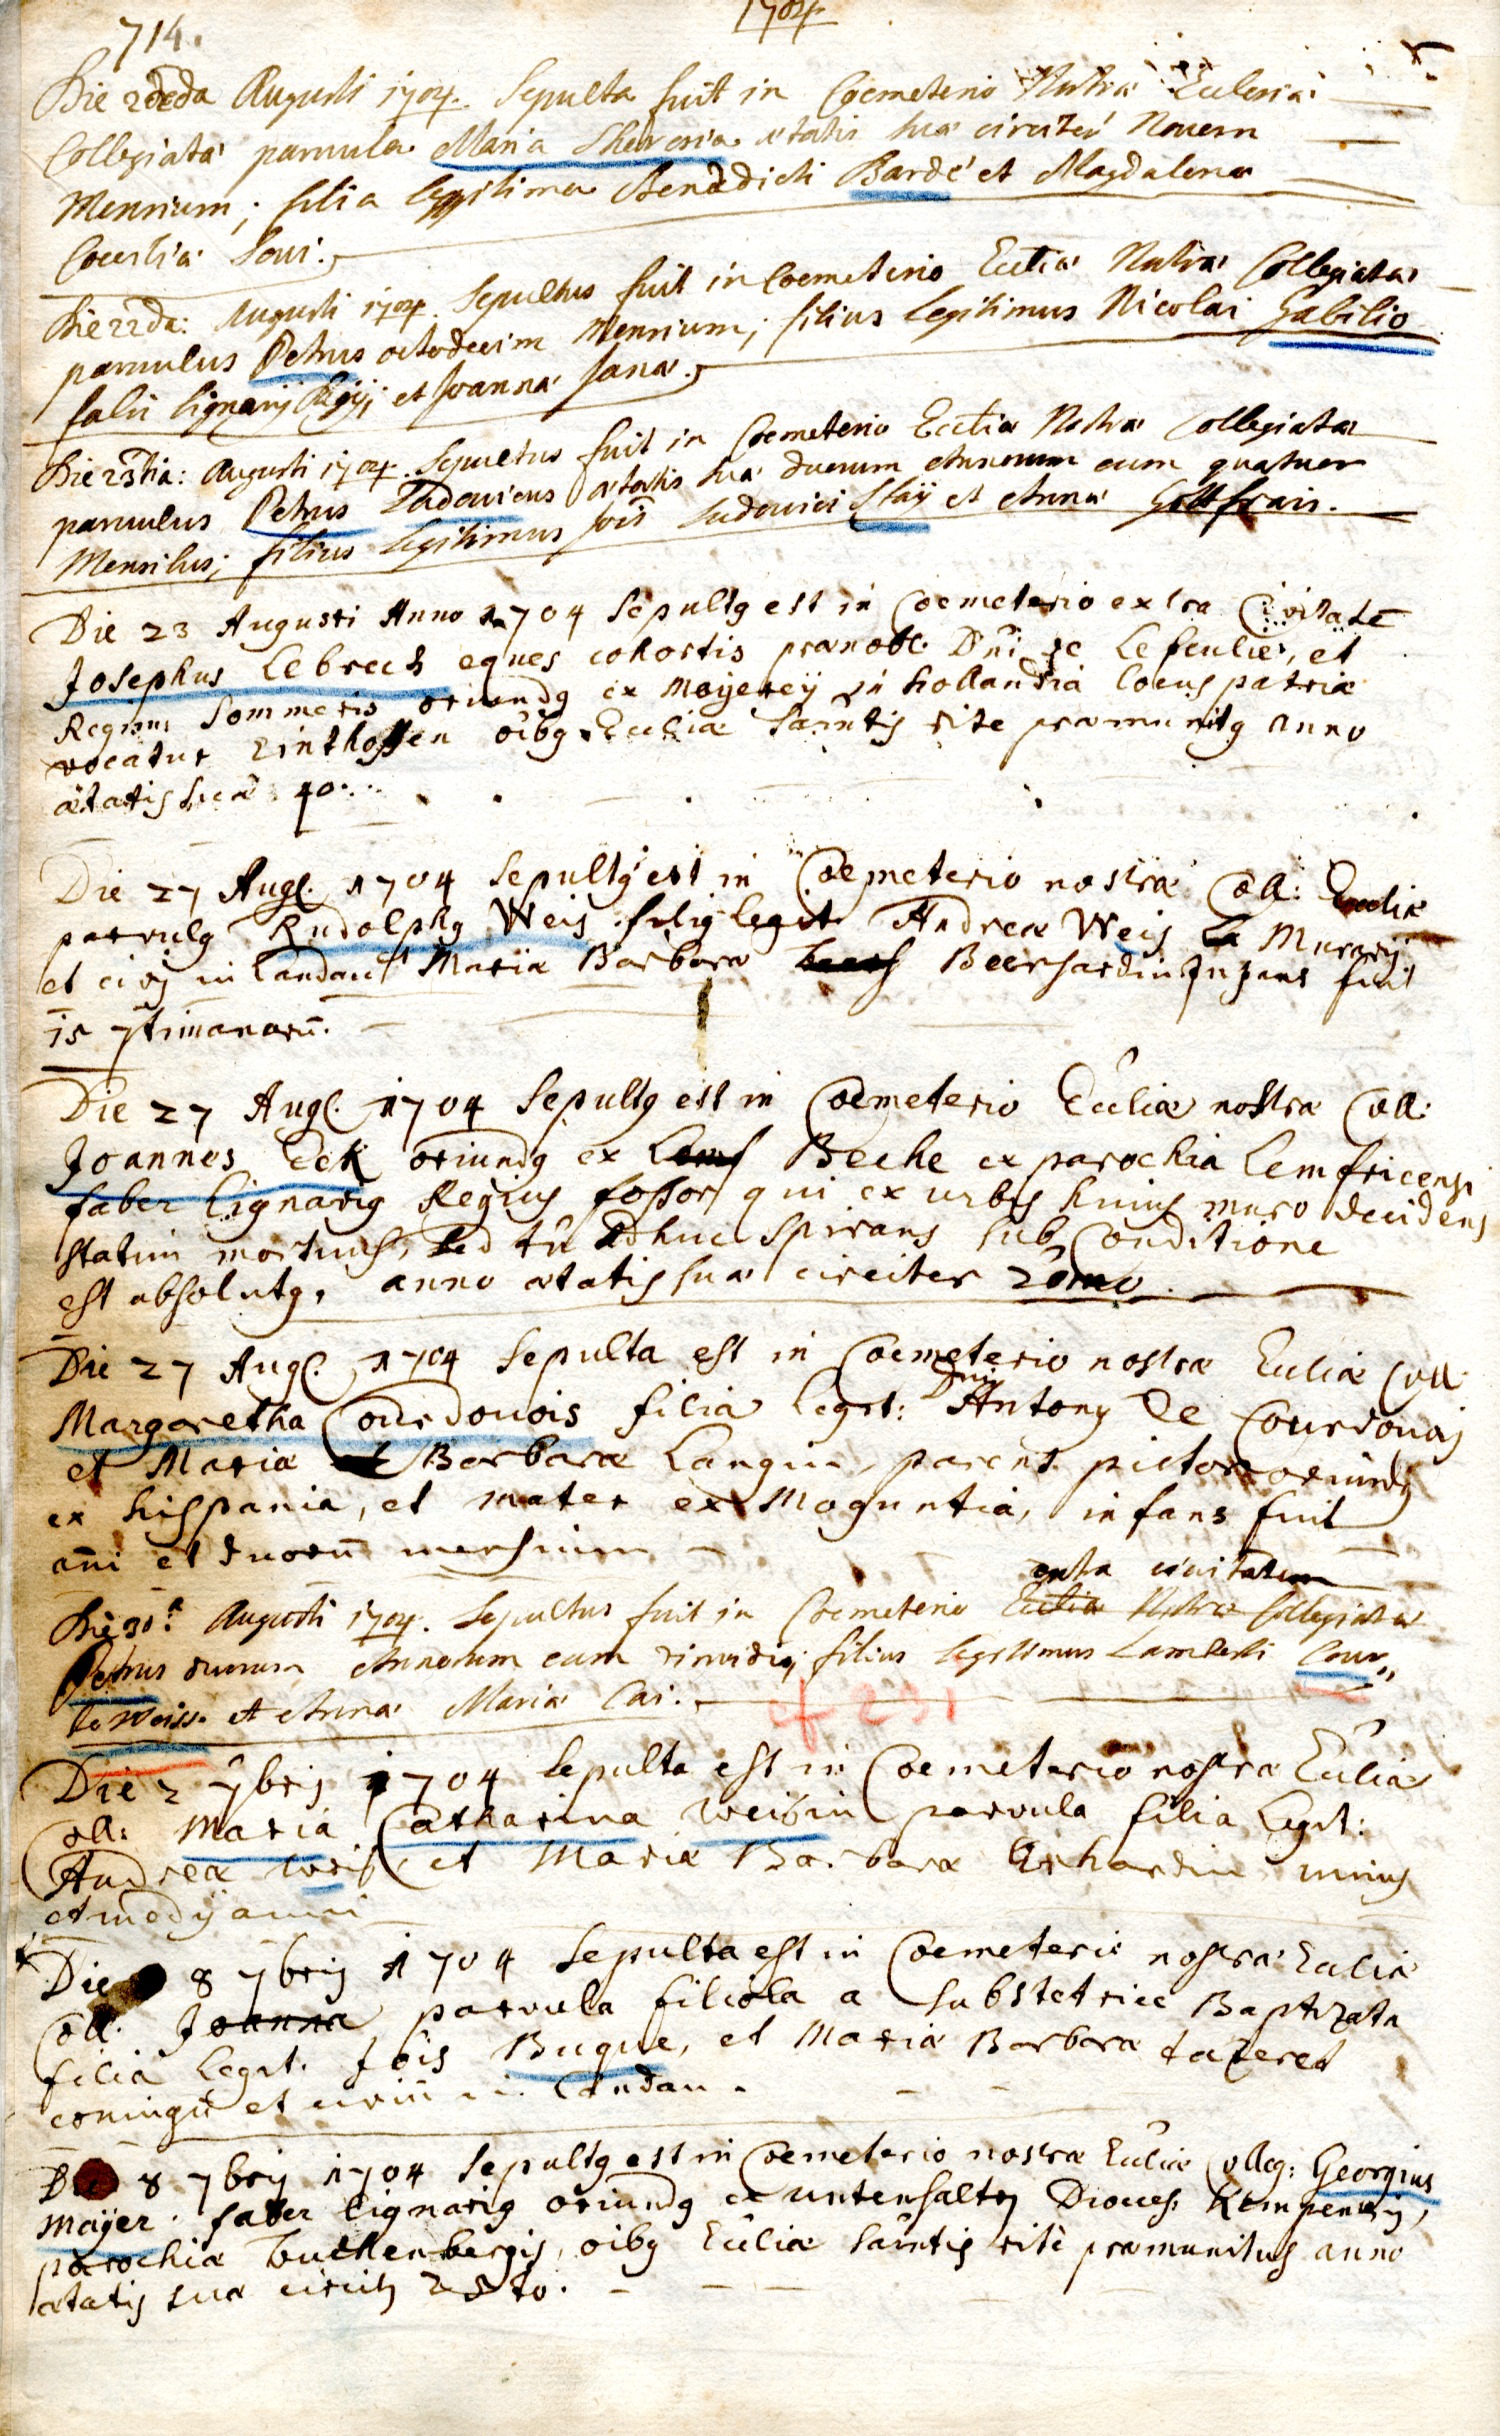 714.
1704
Die 22da Augusti 1704. Sepulta fuit in Coemeterio Nostræ Ecclesiæ
Collegiatæ parvula Maria Theresia ætatis suæ circiter Novem
Mensium; filia legitima Benedicti Bardé et Magdalenæ
Die 22da: Augusti 1704. Sepultus fuit in Coemeterio Eccliæ Nostræ Collegiatæ
parvulus Petrus octodecim Mensium; filius legitimus Nicolai Gabilio
fabri lignarij Regij; et Joannæ Janæ.
Die 23tia: Augusti 1704. Sepultus fuit in Coemeterio Eccliæ Nostræ Collegiatæ
parvulus Petrus Ludovicus ætatis suæ duorum Annorum cum quatuor
Mensibus; filius legitimus Jois Ludovici Staÿ et Annæ Gottfrain.
Die 23 Augusti Anno 1704 Sepultg est in Coemeterio extra Civitatē
Josephus Lebrech eques cohortis prænobl. Dni de Lefeulie, et
Regim: Sommeris oriundg ex Moyereÿ in hollandia locus patriæ
vocatur Einthoffen oibg Eccliæ Sacrntis rite præmunitg anno
ætatis suæ 40.
Die 27 Augl. 1704 Sepultg est in Coemeterio nostræ Coll: Eccliæ
parvulg Rudolphg Weis filig legit Andreæ Weis Murarij
et civis in Landau Mariæ Barbaræ Beerhardin Infans fuit
15 7timanarū.
Die 27 Augl. 1704 Sepultg est in Coemeterio Eccliæ nostræ Coll:
Joannes Eck oriundg ex Beche ex parochia Lemfricensi
faber lignarig Regius fossor qui ex urbis huius muro decidens
statim mortuus, sed tn adhuc spirans sub Conditione
est absolutg, anno ætatis suæ circiter 20mo.
Die 27 Augl. 1704 Sepulta est in Coemeterio nostræ Eccliæ Coll
Margaretha Courdouois filia legit: Dni Antony De Courdouaj
et Mariæ Barbaræ Langin, parens pictor oriundg
ex hispania, et mater ex Moguntia, infans fuit
āni et duorū mensium
extra civitatem
Die 30a: Augusti 1704. Sepultus fuit in Coemeterio Eccliæ Nostræ Collegiatæ
Petrus duorum Annorum cum dimidio; filius legitimus Lamberti Cour,,
te Voiss. et Annæ Mariæ Cai.
cf 231
Die 2 7bris 1704 Sepulta est in Coemeterio nostræ Eccliæ
Coll: Maria Catharina Weisin parvula filia legit:
Andreæ Weis et Mariæ Barbaræ Erhardin unius
et medÿ anni
Die 8 7bris 1704 Sepulta est in Coemeterio nostræ Eccliæ
Coll: Joanna parvula filiola a substetrice Baptizata
filia legit. Jois Buque, et Mariæ Barbaræ
coniugū et civiū in Landau.
Die 8 7bris 1704 Sepultg est in Coemeterio nostræ Eccliæ Colleg: Georgius
Maÿer faber lignarig oriundg ex untersaltzg Dioces: Kempensis,
parochiæ buchenbergis, oibg Eccliæ Sacrntis ritè præmunitus anno